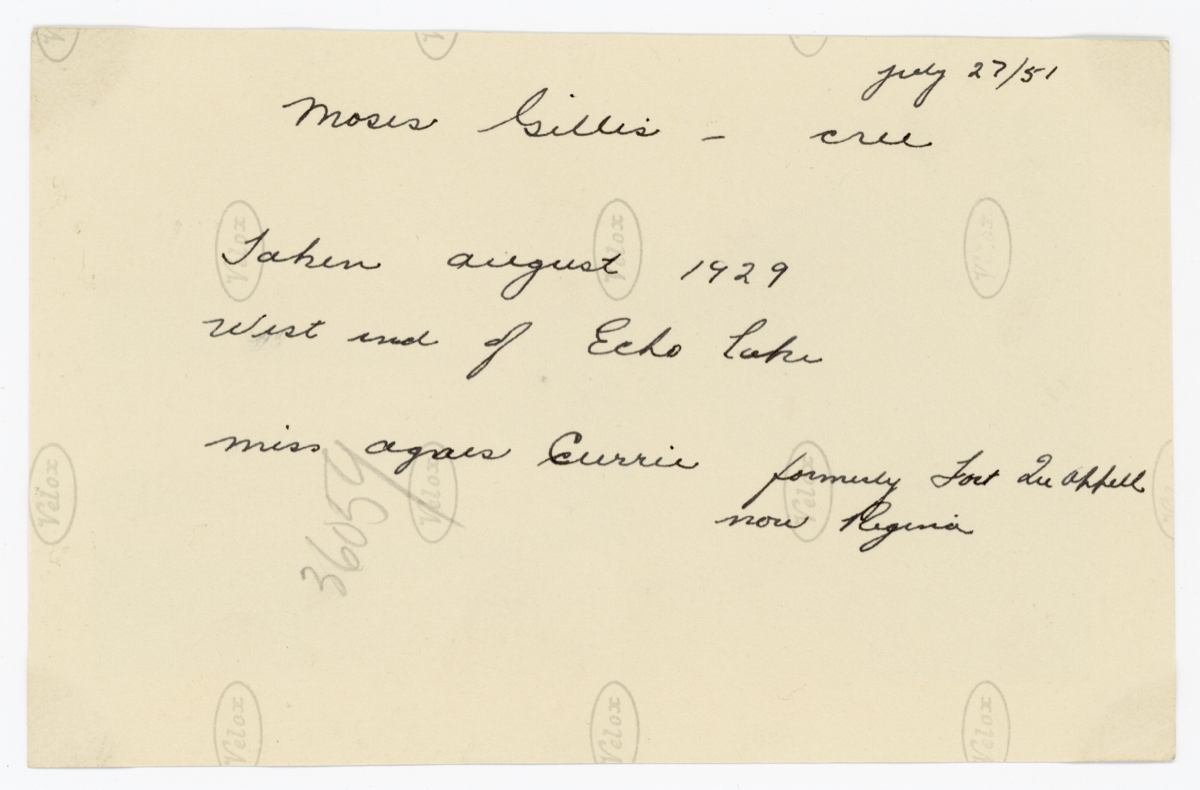 July 27/51
Moses Gillis - Cree
Taken August 1929
West end of Echo Lake
Miss Agnes Currie formerly Fort Qu Appell
now Regina
36054
Velox
Velox
Velox
Velox
Velox
Velox
Velox
Velox
Velox